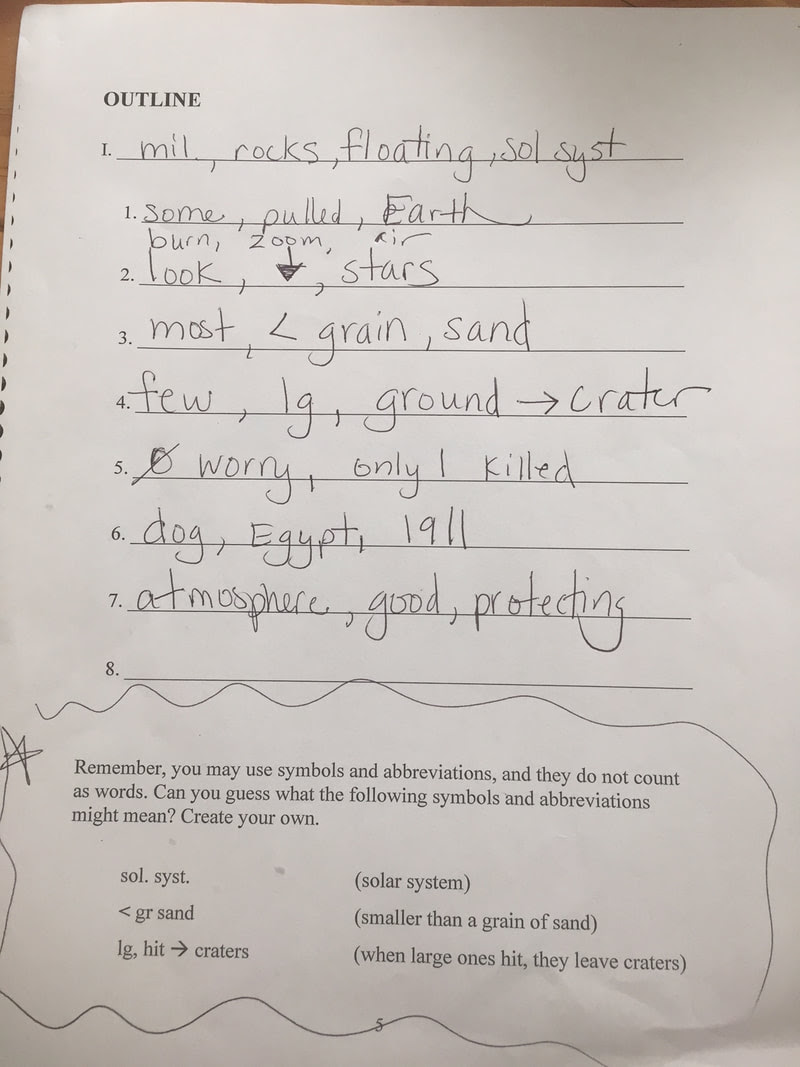 OUTLINE
I. mil., rocks, floating, sol syst
1. some, pulled, Earth
burn, zoom, air
2. look, ↓, stars
3. most, < grain, sand
4. few, lg, ground → crater
5. Ø worry, only 1 killed
6. dog, Egypt, 1911
7. atmosphere, good, protecting
8.
Remember, you may use symbols and abbreviations, and they do not count
as words. Can you guess what the following symbols and abbreviations
might mean? Create your own.
sol. syst. (solar system)
< gr sand (smaller than a grain of sand)
lg, hit → craters (when large ones hit, they leave craters)
5